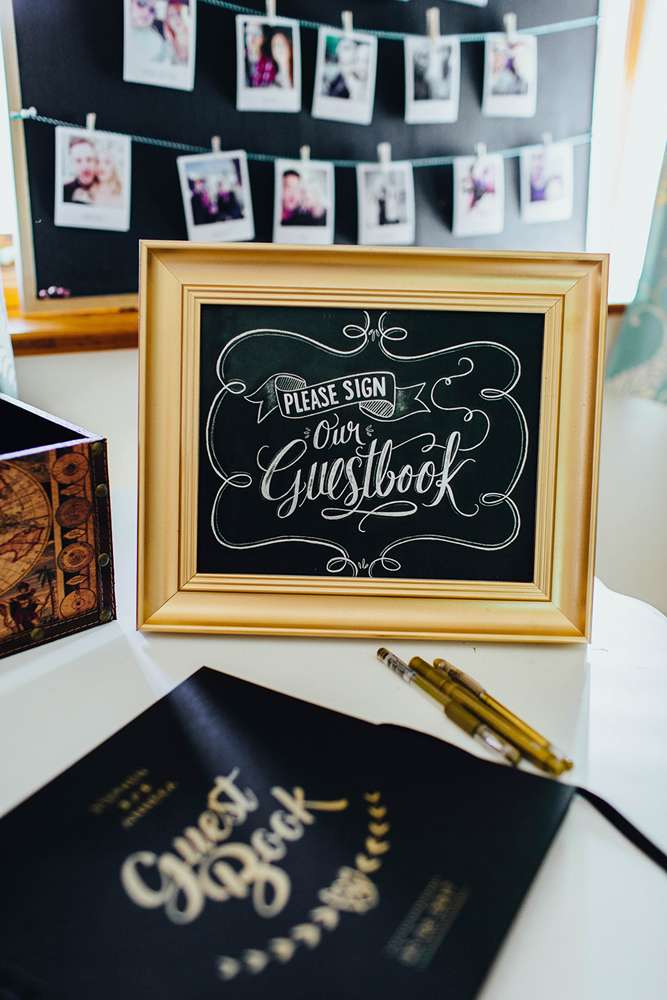 PLEASE SIGN
Our
Guestbook
Guest
Book